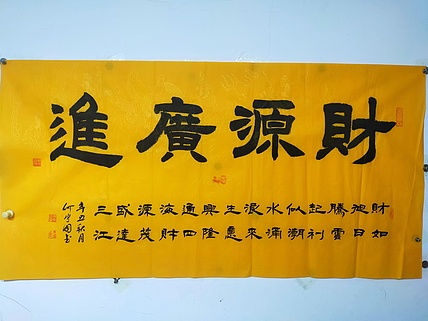 財源廣進
財如
旭日
騰雲
起利
似潮
水涌
來
生意
興隆
通四
海財
源茂
盛達
三江
辛丑秋月